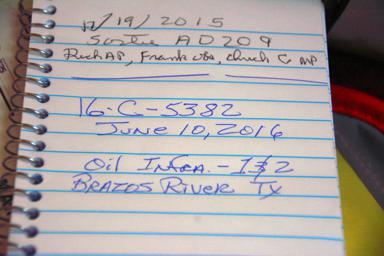 12/19/2015
Sortie AD209
Rich AP, Frank obs, Chuck G MP
16-C-5382
June 10, 2016
Oil Infra. - 1 & 2
Brazos River Tx